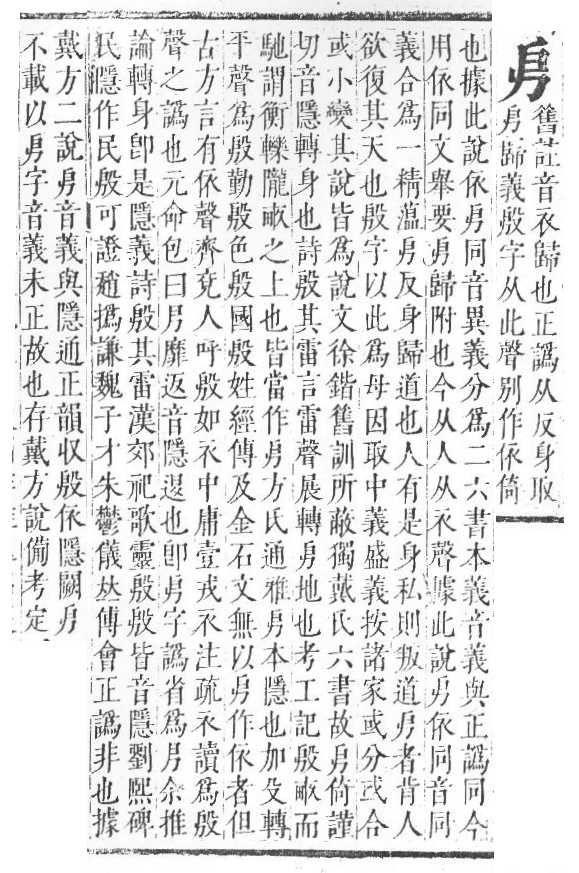 㐆
舊註音衣歸也正譌从反身取
㐆歸義殷字从此聲別作依倚
也據此說依㐆同音異義分爲二六書本義音義與正譌同今
用依同文舉要㐆歸附也今从人从衣聲據此說㐆依同音同
義合爲一精薀㐆反身歸道也人有是身私則叛道㐆者肯人
欲復其天也殷字以此爲母因取中義盛義按諸家或分或合
或小變其說皆爲說文徐鍇舊訓所蔽獨戴氏六書故㐆倚謹
切音隱轉身也詩殷其雷言雷聲展轉㐆地也考工記殷畝而
馳謂衡轢隴畝之上也皆當作㐆方氏通雅㐆本隱也加殳轉
平聲爲殷勤殷色殷國殷姓經傳及金石文無以㐆作依者但
古方言有依聲齊兗人呼殷如衣中庸壹戎衣注疏衣讀爲殷
聲之譌也元命包曰月靡返音隱遐也卽㐆字譌省爲月余推
論轉身卽是隱義詩殷其雷漢郊祀歌靈殷殷皆音隱劉熙碑
民隱作民殷可證趙撝謙魏子才朱鬱儀𠀤傳會正譌非也據
戴方二說㐆音義與隱通正韻收殷依隱闕㐆
不載以㐆字音義未正故也存戴方說備考定